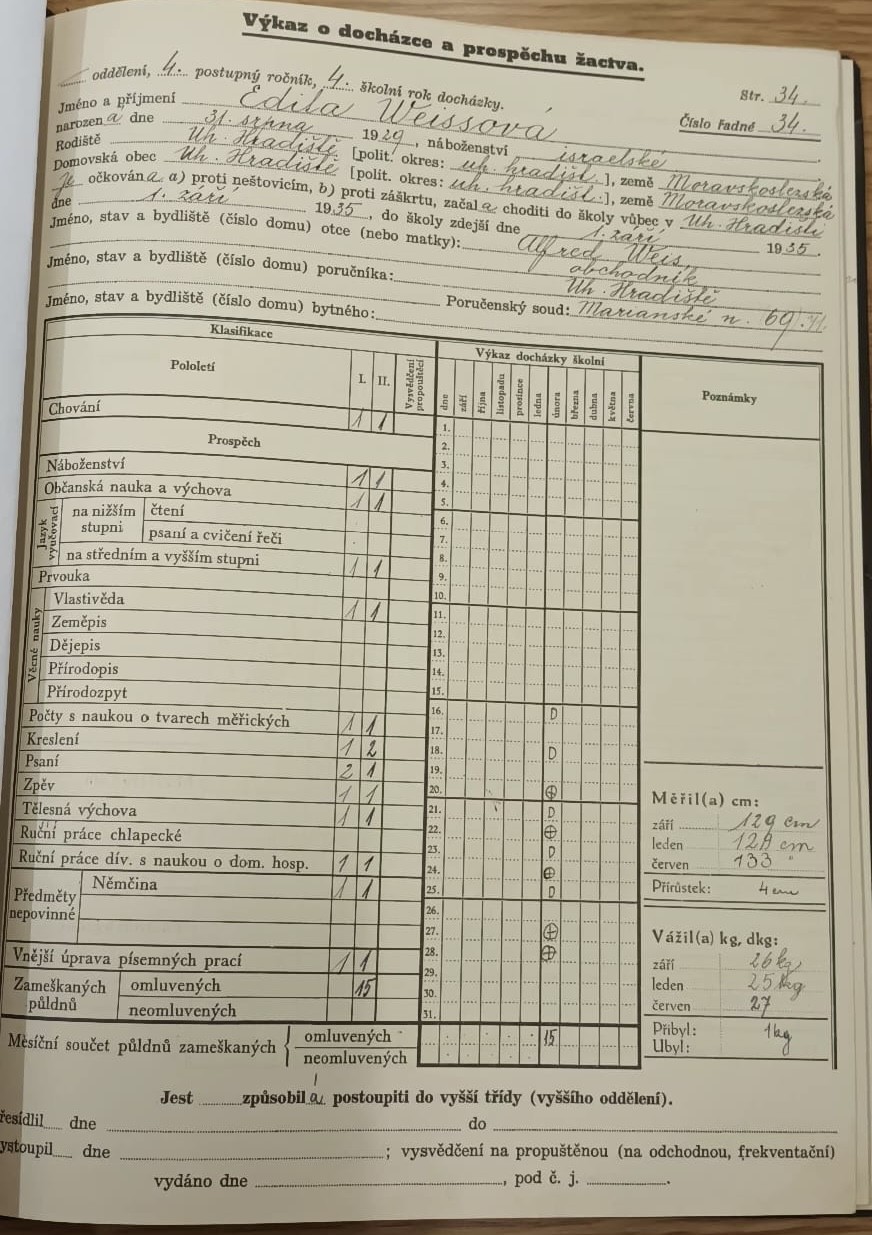 Výkaz o docházce a prospěchu žactva.
oddělení, 4. postupný ročník, 4. školní rok docházky.
Str. 34.
Jméno a příjmení Edita Weissová
Číslo řadné 34.
narozena dne 31. srpna 1929, náboženství israelské
Rodiště Uh. Hradiště [polit. okres: uh. hradišť.], země Moravskoslezská
Domovská obec Uh. Hradiště [polit. okres: uh. hradišť.], země Moravskoslezská
Je očkována a) proti neštovicím, b) proti záškrtu, začala choditi do školy vůbec v Uh. Hradišti
dne 1. září 1935, do školy zdejší dne 1. září 1935.
Jméno, stav a bydliště (číslo domu) otce (nebo matky): Alfred Weis,
obchodník
Jméno, stav a bydliště (číslo domu) poručníka: Uh. Hradiště
Poručenský soud: Marianské n. 69
Jméno, stav a bydliště (číslo domu) bytného:
Klasifikace
Pololetí I. II. Vysvědčení propouštěcí
Chování 1 1
Prospěch
Náboženství 1 1
Občanská nauka a výchova 1 1
Jazyk vyučovací
na nižším stupni
čtení
psaní a cvičení řeči
na středním a vyšším stupni 1 1
Prvouka
Věcné nauky
Vlastivěda 1 1
Zeměpis
Dějepis
Přírodopis
Přírodozpyt
Počty s naukou o tvarech měřických 1 1
Kreslení 1 2
Psaní 2 1
Zpěv 1 1
Tělesná výchova 1 1
Ruční práce chlapecké
Ruční práce dív. s naukou o dom. hosp. 1 1
Předměty nepovinné
Němčina 1 1
Vnější úprava písemných prací 1 1
Zameškaných půldnů
omluvených 15
neomluvených
Výkaz docházky školní
dne září října listopadu prosince ledna února března dubna května června
1.
2.
3.
4.
5.
6.
7.
8.
9.
10.
11.
12.
13.
14.
15.
16. D
17.
18. D
19.
20. ⊕
21. D
22. ⊕
23. D
24. ⊕
25. D
26.
27. ⊕
28. ⊕
29.
30.
31.
Měsíční součet půldnů zameškaných { omluvených 15
neomluvených
Poznámky
Měřil(a) cm:
září 129 cm
leden 129 cm
červen 133 "
Přírůstek: 4 cm
Vážil(a) kg, dkg:
září 26 kg
leden 25 kg
červen 27
Přibyl: 1 kg
Ubyl:
Jest způsobila postoupiti do vyšší třídy (vyššího oddělení).
řesídlil dne do
ystoupil dne ; vysvědčení na propuštěnou (na odchodnou, frekventační)
vydáno dne , pod č. j. .